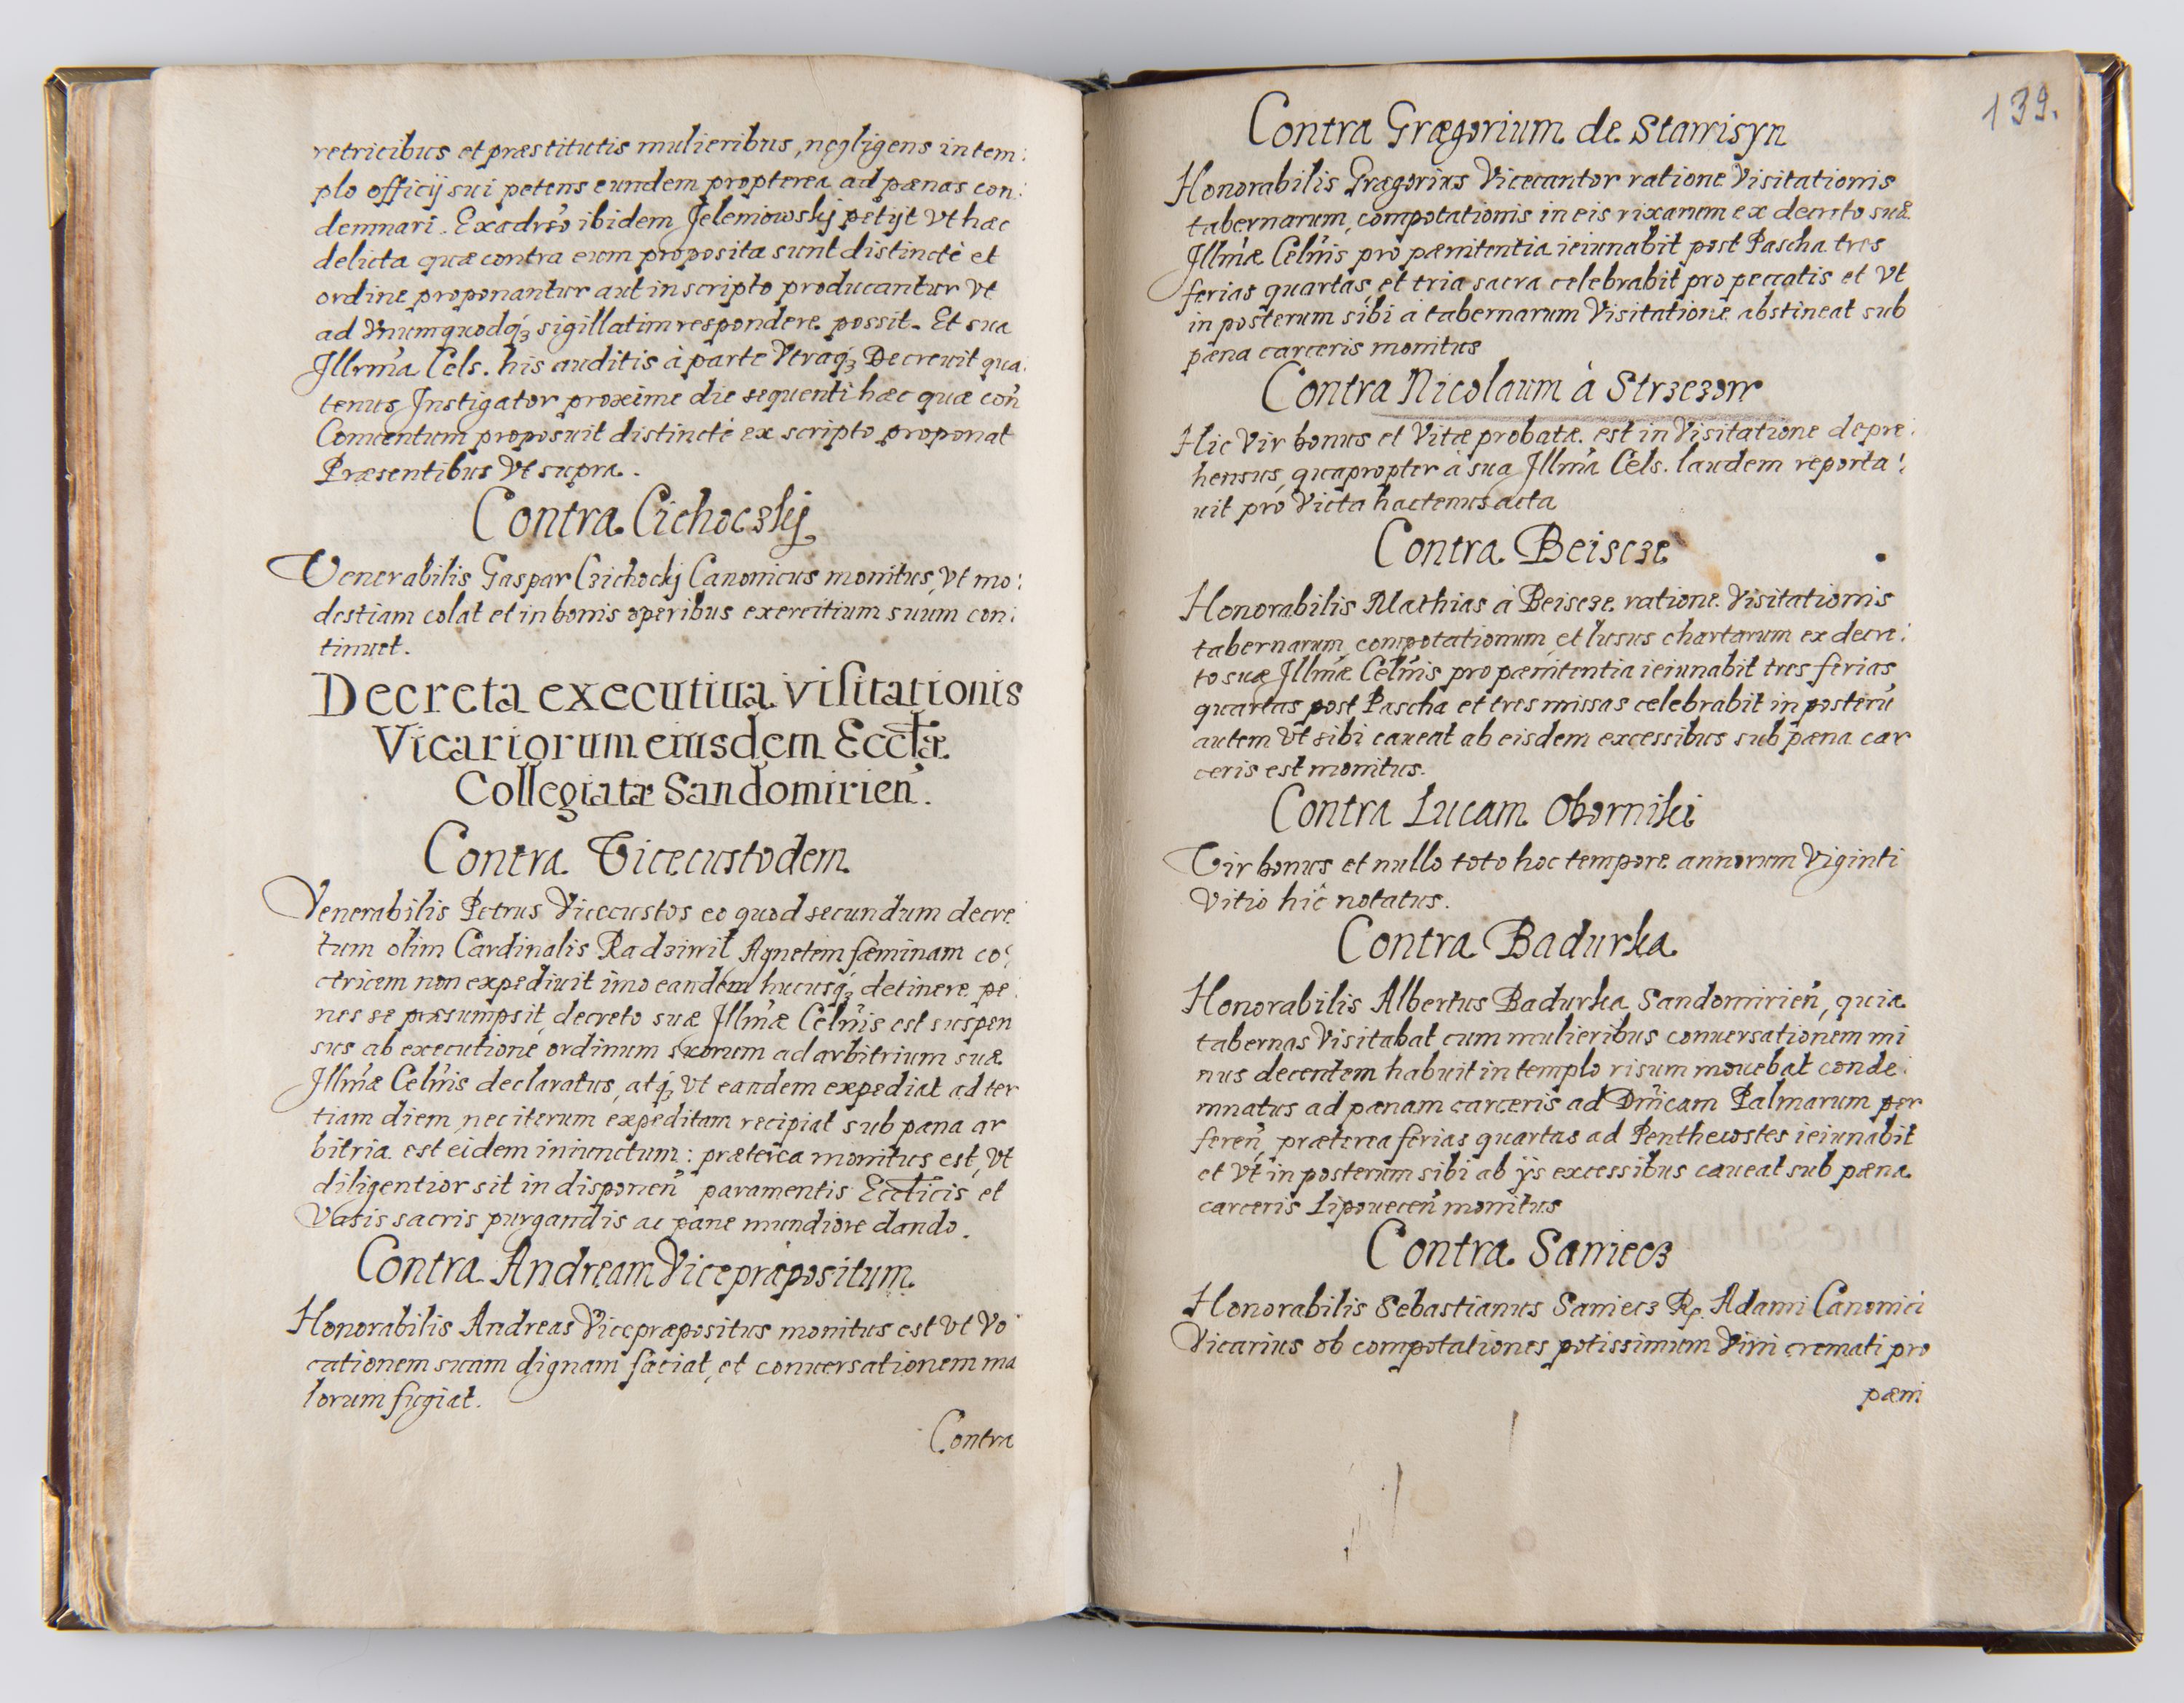 retricibus et præstitutis mulieribus, negligens in tem:
plo officij sui petens eundem propterea ad pænas con:
demnari. Exadrsó ibidem Jeleniowskij petijt Vt hæc
delicta quæ contra eum proposita sunt distinctè et
ordine proponantur aut in scripto producantur Vt
ad Vnumquodq́ꝫ sigillatim respondere possit. Et sua
Illrm̃a Cels. his auditis à parte Vtraq́ꝫ Decreuit qua:
tenus Instigator proxime die sequenti hæc quæ coñ
Conuentum proposuit distinctè ex scripto proponat
Præsentibus Vt supra.
Contra Cichoczkij
Venerabilis Gaspar Czichockj Canonicus monitus, Vt mo:
destiam colat et in bonis operibus exercitium suum con:
tinuet.
Decreta executiua visitationis
Vicariorum eiusdem Eccłæ
Collegiatæ Sandomirień.
Contra Vicecustodem
Venerabilis Petrus Vicecustos eo quod secundum decre
tum olim Cardinalis Radziwił Agnetem fæminam co:
ctricem non expediuit imo eandem hucusq́ꝫ detinere pe:
nes se præsumpsit, decreto suæ Illm̃æ Celñis est suspen
sus ab executione ordinum suorum ad arbitrium suæ
Illm̃æ Celñis declaratus, atq́ꝫ Vt eandem expediat ad ter
tiam diem nec iterum expeditam recipiat sub pæna ar
bitria est eidem iniunctum: præterea monitus est, Vt
diligentior sit in disponeñ paramentis Eccłticis et
Vasis sacris purgandis ac pane mundiore dando.
Contra Andream Vicepræpositum
Honorabilis Andreas Vicepræpositus monitus est Vt Vo
cationem suam dignam faciat, et conuersationem ma
lorum fugiat.
Contra
139.
Contra Grægorium de Stawiszyn
Honorabilis Grægorius Vicecantor ratione Visitationis
tabernarum, compotationis in eis rixarum ex decreto suæ
Illm̃æ Celñis pro pænitentia ieiunabit post Pascha tres
ferias quartas, et tria sacra celebrabit pro peccatis et Vt
in posterum sibi à tabernarum Visitatione abstineat sub
pæna carceris monitus
Contra Nicolaum à Strzezow
Hic Vir bonus et Vitæ probatæ est in Visitatione depre:
hensus, quapropter à sua Illm̃a Cels. laudem reporta:
uit pro Victa hactenus acta
Contra Beiscze
Honorabilis Mathias à Beiscze ratione Visitationis
tabernarum, compotationum, et lusus chartarum ex decre:
to suæ Illm̃æ Celñis pro pænitentia ieiunabit tres ferias
quartas post Pascha et tres missas celebrabit in posterũ
autem Vt sibi caueat ab eisdem excessibus sub pæna car
ceris est monitus.
Contra Lucam Obornikj
Vir bonus et nullo toto hoc tempore annorum Viginti
Vitio hic notatus.
Contra Badurka
Honorabilis Albertus Badurka Sandomirień, quia
tabernas Visitabat cum mulieribus conuersationem mi
nus decentem habuit in templo risum mouebat conde:
mnatus ad pænam carceris ad Dñicam Palmarum per
fereñ, præterea ferias quartas ad Penthecostes ieiunabit
et Vt in posterum sibi ab ijs excessibus caueat sub pæna
carceris Lipoueceñ monitus
Contra Samiecz
Honorabilis Sebastianus Samiecz R. Adami Canonici
Vicarius ob compotationes potissimum Vini cremati pro
pæni